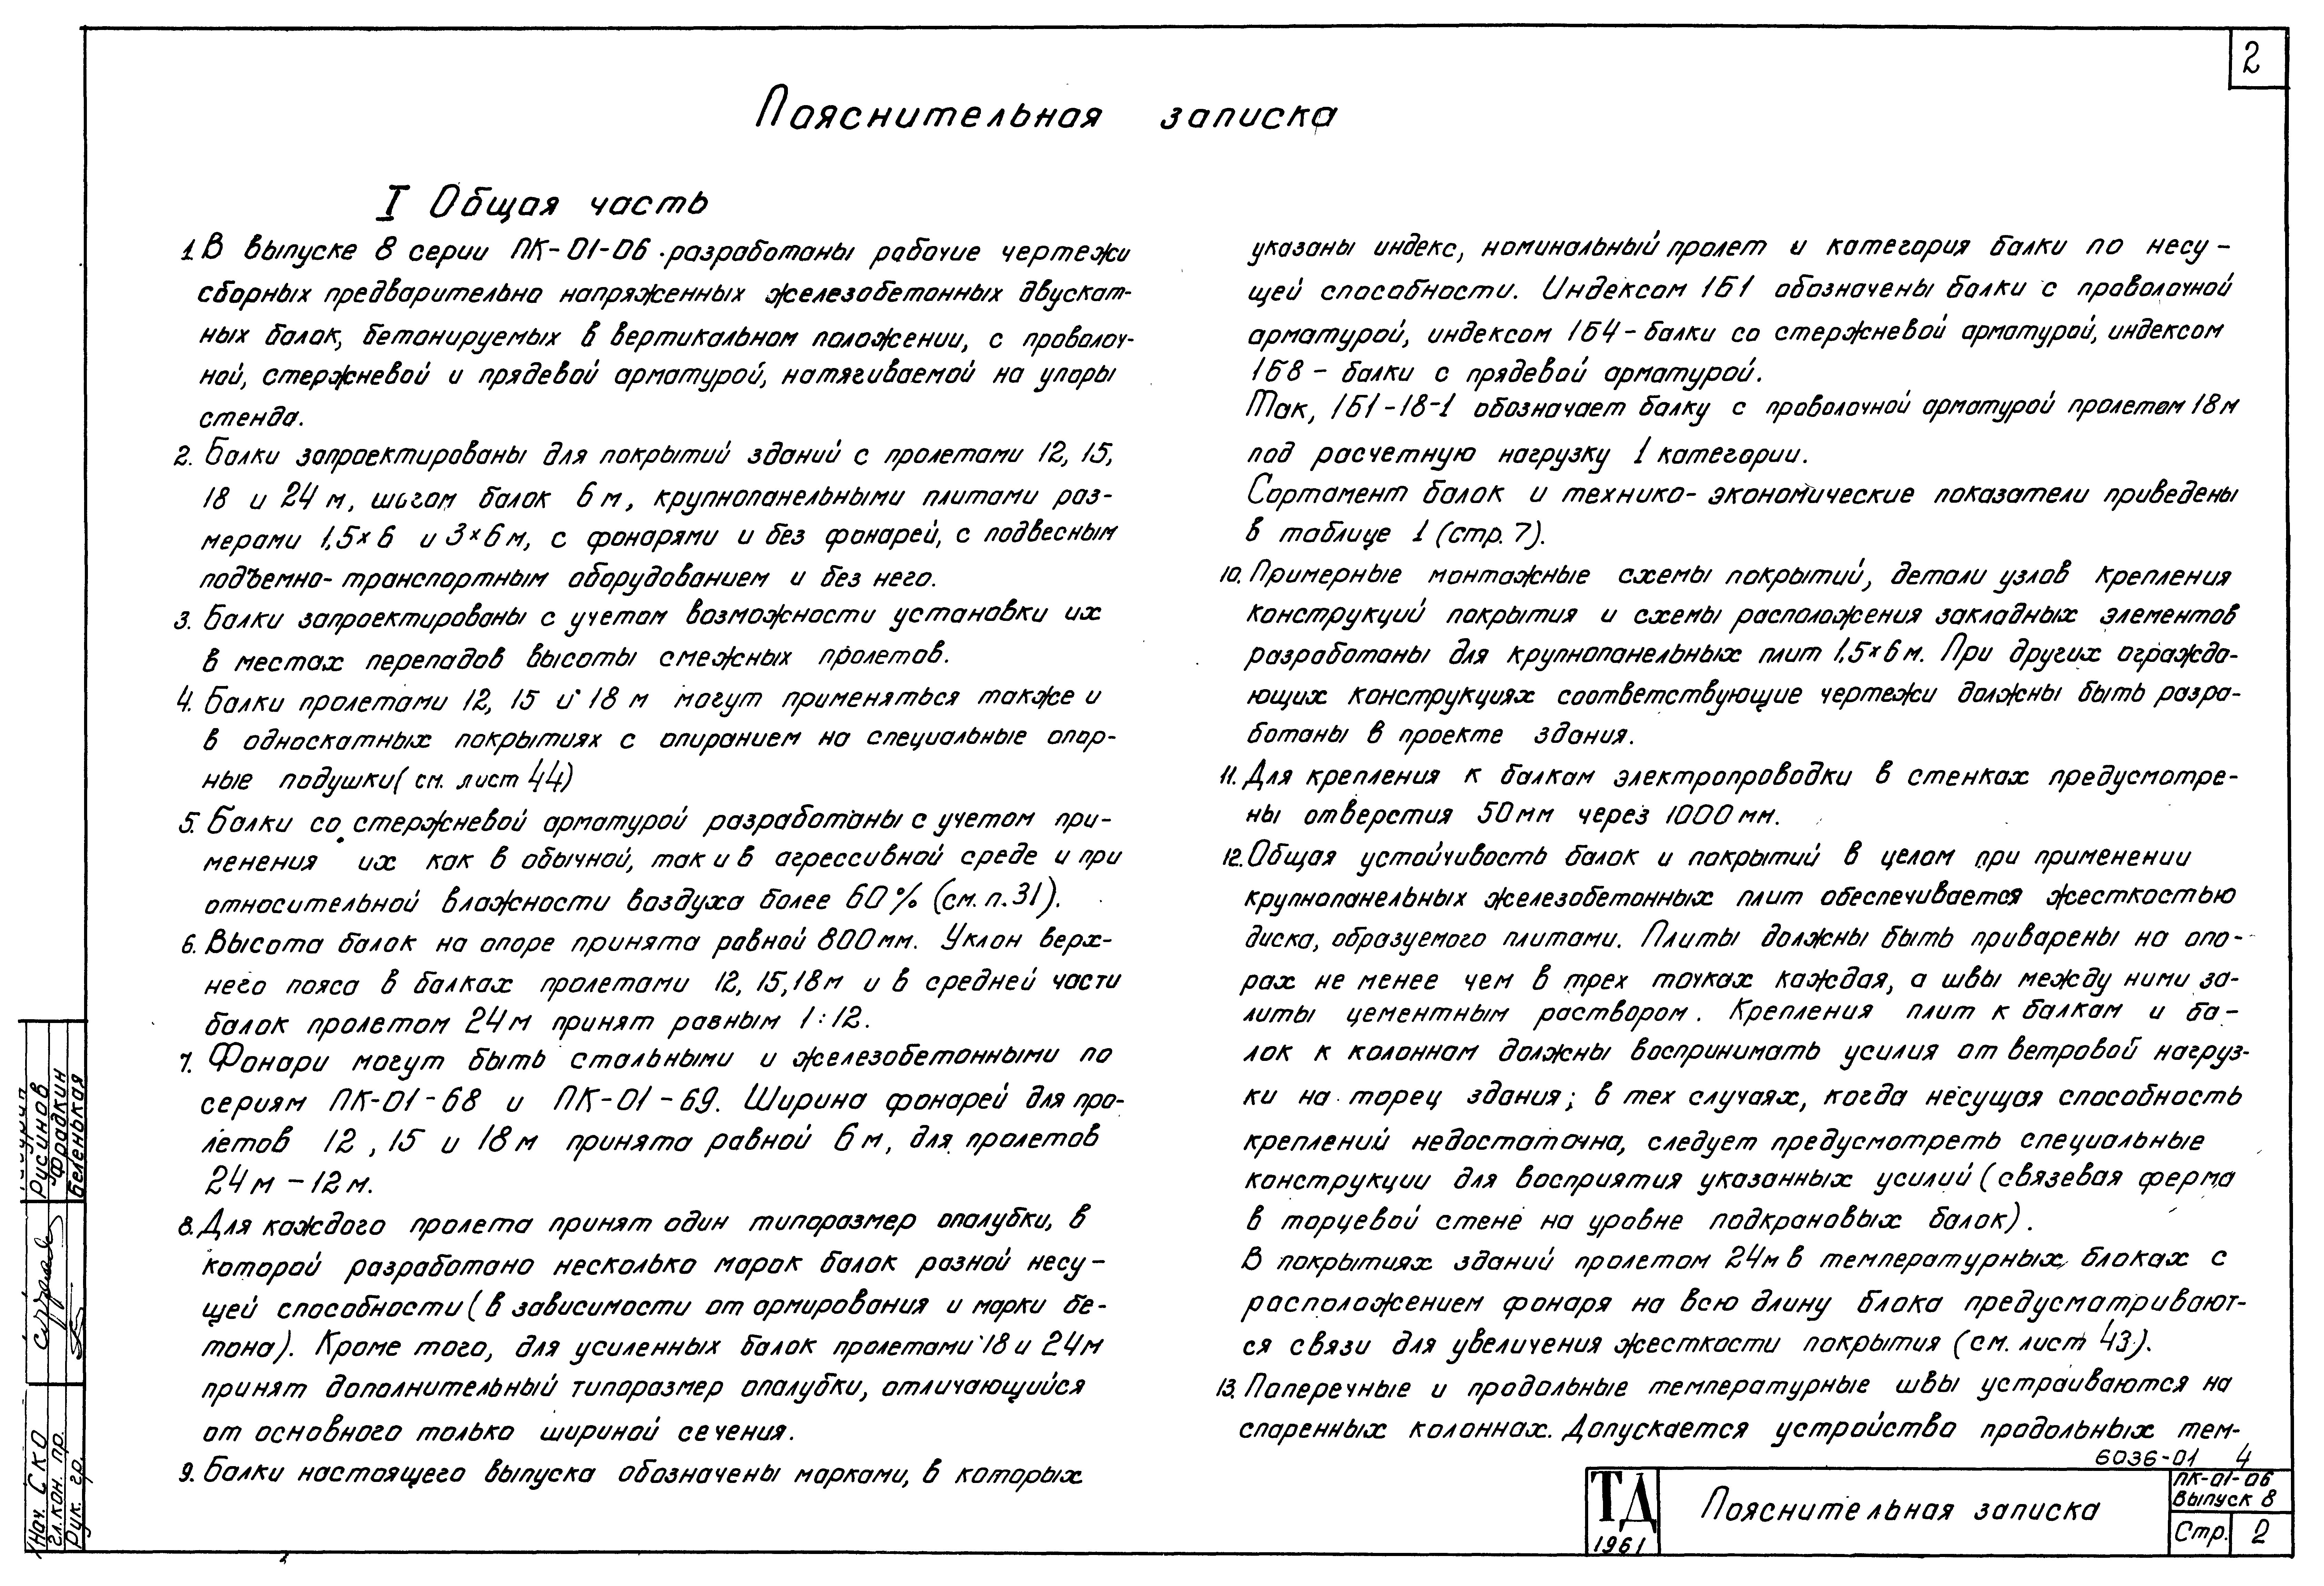 2
Пояснительная записка
I Общая часть
1. В выпуске 8 серии ПК-01-06 разработаны рабочие чертежи
сборных предварительно напряженных железобетонных двускат-
ных балок, бетонируемых в вертикальном положении, с проволоч-
ной, стержневой и прядевой арматурой, натягиваемой на упоры
стенда.
2. Балки запроектированы для покрытий зданий с пролетами 12, 15,
18 и 24 м, шагом балок 6 м, крупнопанельными плитами раз-
мерами 1,5×6 и 3×6 м, с фонарями и без фонарей, с подвесным
подъемно-транспортным оборудованием и без него.
3. Балки запроектированы с учетом возможности установки их
в местах перепадов высоты смежных пролетов.
4. Балки пролетами 12, 15 и 18 м могут применяться также и
в односкатных покрытиях с опиранием на специальные опор-
ные подушки (см. лист 44)
5. Балки со стержневой арматурой разработаны с учетом при-
менения их как в обычной, так и в агрессивной среде и при
относительной влажности воздуха более 60% (см. п. 31).
6. Высота балок на опоре принята равной 800 мм. Уклон верх-
него пояса в балках пролетами 12, 15, 18 м и в средней части
балок пролетом 24 м принят равным 1:12.
7. Фонари могут быть стальными и железобетонными по
сериям ПК-01-68 и ПК-01-69. Ширина фонарей для про-
летов 12, 15 и 18 м принята равной 6 м, для пролетов
24 м – 12 м.
8. Для каждого пролета принят один типоразмер опалубки, в
которой разработано несколько марок балок разной несу-
щей способности (в зависимости от армирования и марки бе-
тона). Кроме того, для усиленных балок пролетами 18 и 24 м
принят дополнительный типоразмер опалубки, отличающийся
от основного только шириной сечения.
9. Балки настоящего выпуска обозначены марками, в которых
указаны индекс, номинальный пролет и категория балки по несу-
щей способности. Индексом 1Б1 обозначены балки с проволочной
арматурой, индексом 1Б4 – балки со стержневой арматурой, индексом
1Б8 – балки с прядевой арматурой.
Так, 1Б1-18-1 обозначает балку с проволочной арматурой пролетом 18 м
под расчетную нагрузку 1 категории.
Сортамент балок и технико-экономические показатели приведены
в таблице 1 (стр. 7).
10. Примерные монтажные схемы покрытий, детали узлов крепления
конструкций покрытия и схемы расположения закладных элементов
разработаны для крупнопанельных плит 1,5×6 м. При других огражда-
ющих конструкциях соответствующие чертежи должны быть разра-
ботаны в проекте здания.
11. Для крепления к балкам электропроводки в стенках предусмотре-
ны отверстия 50 мм через 1000 мм.
12. Общая устойчивость балок и покрытий в целом при применении
крупнопанельных железобетонных плит обеспечивается жесткостью
диска, образуемого плитами. Плиты должны быть приварены на опо-
рах не менее чем в трех точках каждая, а швы между ними за-
литы цементным раствором. Крепления плит к балкам и ба-
лок к колоннам должны воспринимать усилия от ветровой нагруз-
ки на торец здания; в тех случаях, когда несущая способность
креплений недостаточна, следует предусмотреть специальные
конструкции для восприятия указанных усилий (связевая ферма
в торцевой стене на уровне подкрановых балок).
В покрытиях зданий пролетом 24 м в температурных блоках с
расположением фонаря на всю длину блока предусматривают-
ся связи для увеличения жесткости покрытия (см. лист 43).
13. Поперечные и продольные температурные швы устраиваются на
спаренных колоннах. Допускается устройство продольных тем-
6036-01 4
ТД
1961
Пояснительная записка
ПК-01-06
Выпуск 8
Стр. 2
Нач. СКО
Гл. кон. пр. Русинов
Фрадкин
Рук. гр. Беленькая